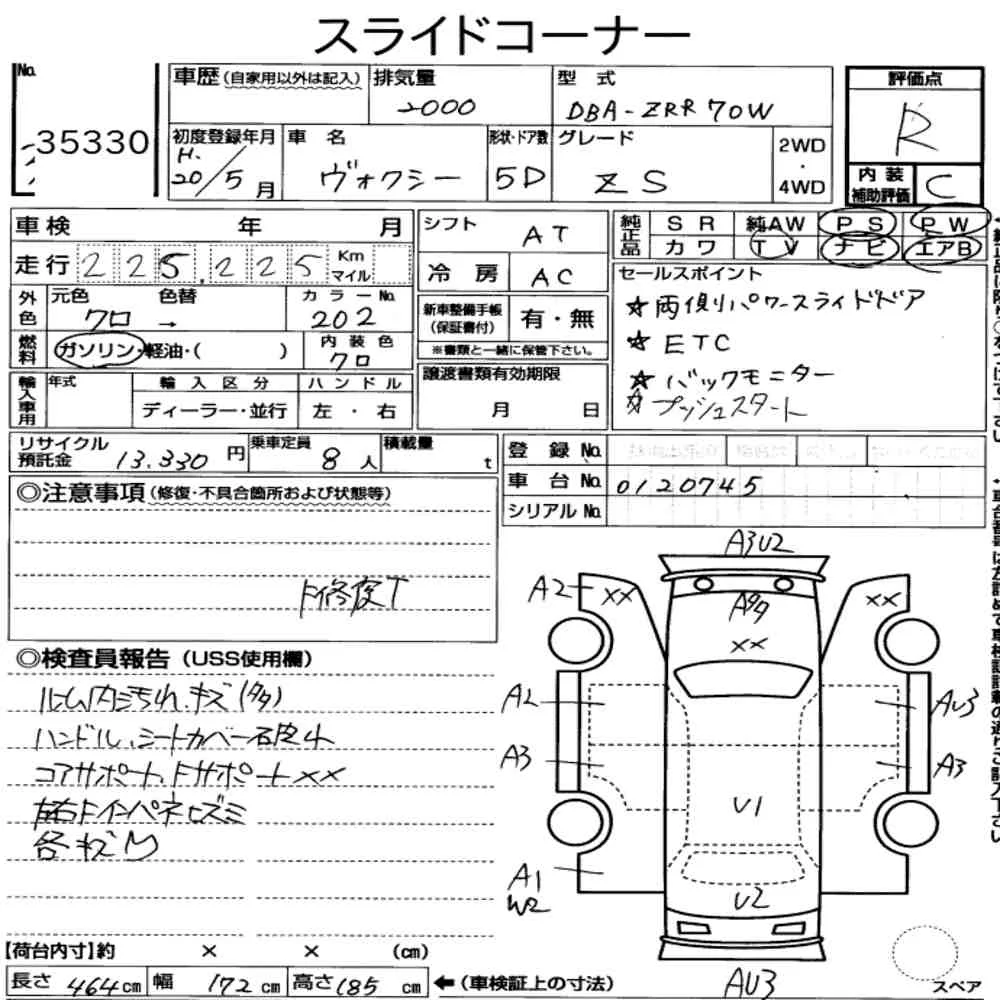 スライドコーナー
No.
35330
車歴 (自家用以外は記入)
排気量
2000
型式
DBA-ZRR70W
評価点
R
初度登録年月
H.
20/5月
車名
ヴォクシー
形状・ドア数
5D
グレード
ZS
2WD
・
4WD
内装
補助評価
C
車検 年 月
走行 225,225 Km
マイル
外色
元色 色替
クロ →
カラーNo.
202
燃料
ガソリン・軽油・( )
内装色
クロ
輸入車用
年式
輸入区分
ハンドル
ディーラー・並行
左・右
シフト
AT
冷房
AC
新車整備手帳
(保証書付)
有・無
※書類と一緒に保管下さい。
譲渡書類有効期限
月 日
純正品
SR 純AW PS PW
カワ TV ナビ エアB
セールスポイント
☆両側パワースライドドア
☆ETC
☆バックモニター
☆プッシュスタート
リサイクル
預託金
13.330円
乗車定員
8人
積載量
t
登録No.
車台No.
0120745
シリアルNo.
◎注意事項 (修復・不具合箇所および状態等)
ト修復T
◎検査員報告 (USS使用欄)
ルーム内汚れ、キズ(タタ)
ハンドル、シートカバー破れ
コアサポート、ドサポートXX
左右トインパネヒズミ
各キズ凹
A3U2
A2
XX
XX
A99
XX
A2
AU3
A3
A3
U1
A1
W2
U2
AU3
スペア
【荷台内寸】約 × × (cm)
長さ 464cm
幅 172cm
高さ 185cm
←(車検証上の寸法)